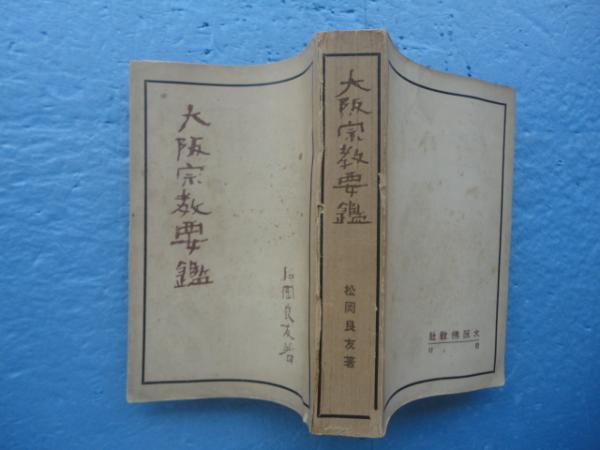 大阪宗教要鑑
松岡良友著
大阪宗教要鑑
松岡良友著
大阪佛教社